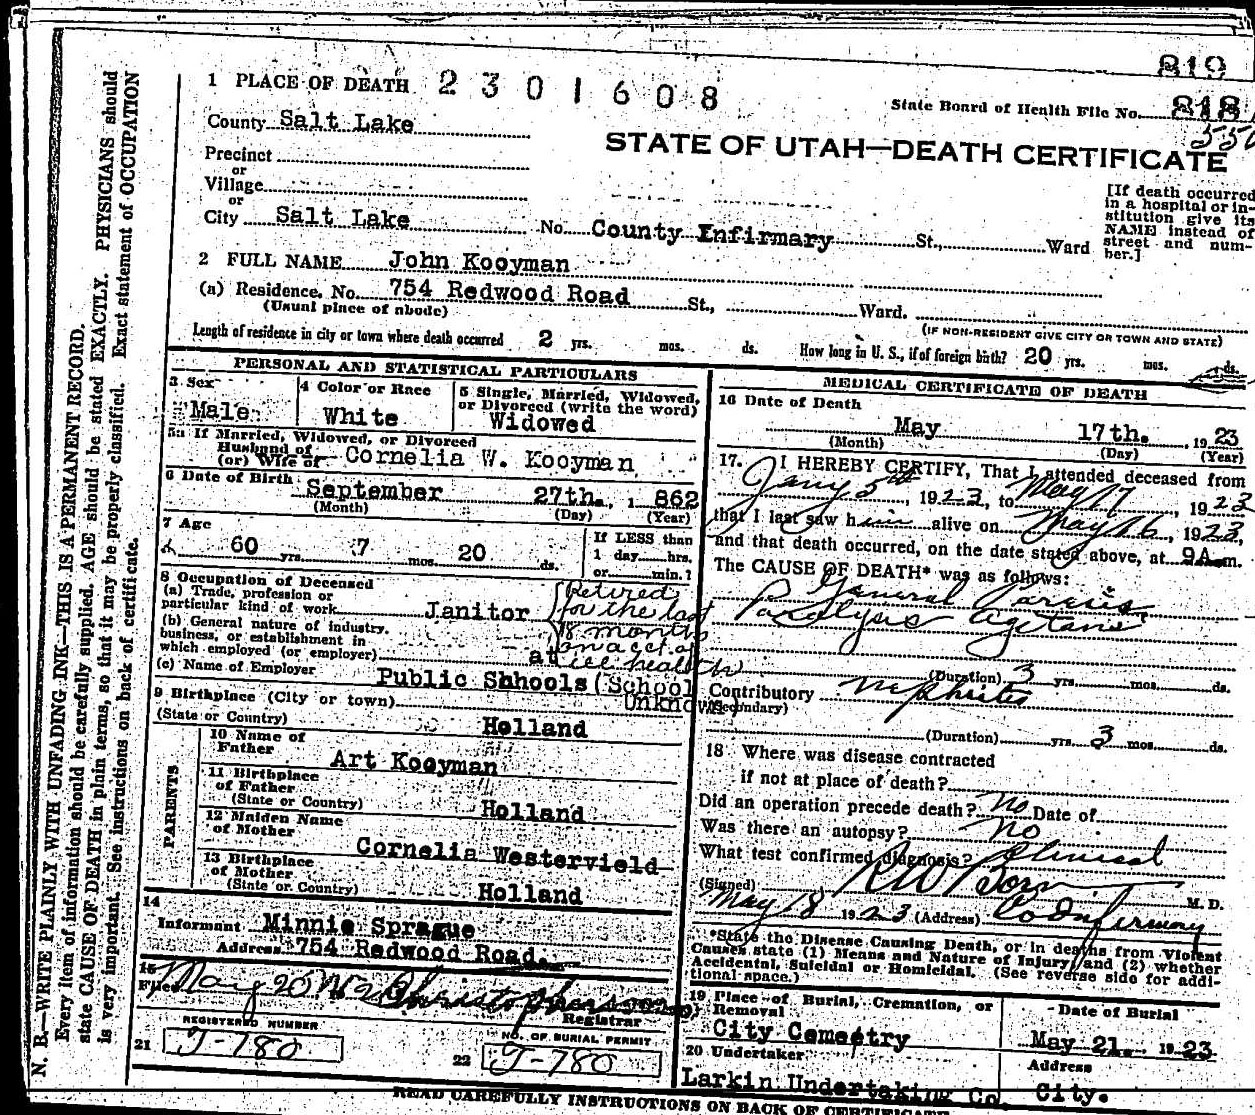 819
1 PLACE OF DEATH 2301608
State Board of Health File No. 818
County Salt Lake
STATE OF UTAH—DEATH CERTIFICATE
Precinct
or
Village
or
City Salt Lake No. County Infirmary St., Ward
[If death occurred
in a hospital or in-
stitution give its
NAME instead of
street and num-
ber.]
2 FULL NAME John Kooyman
(a) Residence. No. 754 Redwood Road St., Ward.
(Usual place of abode)
(IF NON-RESIDENT GIVE CITY OR TOWN AND STATE)
Length of residence in city or town where death occurred 2 yrs. mos. ds. How long in U. S., if of foreign birth? 20 yrs. mos. ds.
PERSONAL AND STATISTICAL PARTICULARS
3 Sex
Male
4 Color or Race
White
5 Single, Married, Widowed,
or Divorced (write the word)
Widowed
5a If Married, Widowed, or Divorced
Husband of
(or) Wife of Cornelia W. Kooyman
6 Date of Birth September 27th., 1862
(Month) (Day) (Year)
7 Age
60 yrs. 7 mos. 20 ds.
If LESS than
1 day hrs.
or min.?
8 Occupation of Deceased
(a) Trade, profession or
particular kind of work Janitor
(b) General nature of industry,
business, or establishment in
which employed (or employer) at
Retired
for the last
18 months
on acct of
ill health
(c) Name of Employer Public Shhools (School
9 Birthplace (City or town) Unknown
(State or Country) Holland
PARENTS
10 Name of
Father Art Kooyman
11 Birthplace
of Father
(State or Country) Holland
12 Maiden Name
of Mother Cornelia Westervield
13 Birthplace
of Mother
(State or Country) Holland
14
Informant Minnie Sprague
Address 754 Redwood Road.
15
Filed May 20
Registrar
REGISTERED NUMBER
21 J-780
NO. OF BURIAL PERMIT
22 J-780
MEDICAL CERTIFICATE OF DEATH
16 Date of Death
May 17th. , 1923
(Month) (Day) (Year)
17. I HEREBY CERTIFY, That I attended deceased from
Jany 5th, 1923, to May 17, 1923
that I last saw him alive on May 16, 1923,
and that death occurred, on the date stated above, at 9 A. m.
The CAUSE OF DEATH* was as follows:
General Paresis
Paralysis Agitans
(Duration) 3 yrs. mos. ds.
Contributory Nephritis
(Secondary)
(Duration) yrs. 3 mos. ds.
18 Where was disease contracted
if not at place of death?
Did an operation precede death? No Date of
Was there an autopsy? No
What test confirmed diagnosis? Clinical
(Signed) M. D.
May 18, 1923 (Address) Co Infirmary
*State the Disease Causing Death, or in deaths from Violent
Causes state (1) Means and Nature of Injury and (2) whether
Accidental, Suicidal or Homicidal. (See reverse side for addi-
tional space.)
19 Place of Burial, Cremation, or
Removal
City Cemestry
Date of Burial
May 21. 1923
20 Undertaker
Larkin Undertaking Co.
Address
City.
READ CAREFULLY INSTRUCTIONS ON BACK OF CERTIFICATE
N. B.—WRITE PLAINLY WITH UNFADING INK—THIS IS A PERMANENT RECORD.
Every item of information should be carefully supplied. AGE should be stated EXACTLY. PHYSICIANS should
state CAUSE OF DEATH in plain terms, so that it may be properly classified. Exact statement of OCCUPATION
is very important. See instructions on back of certificate.